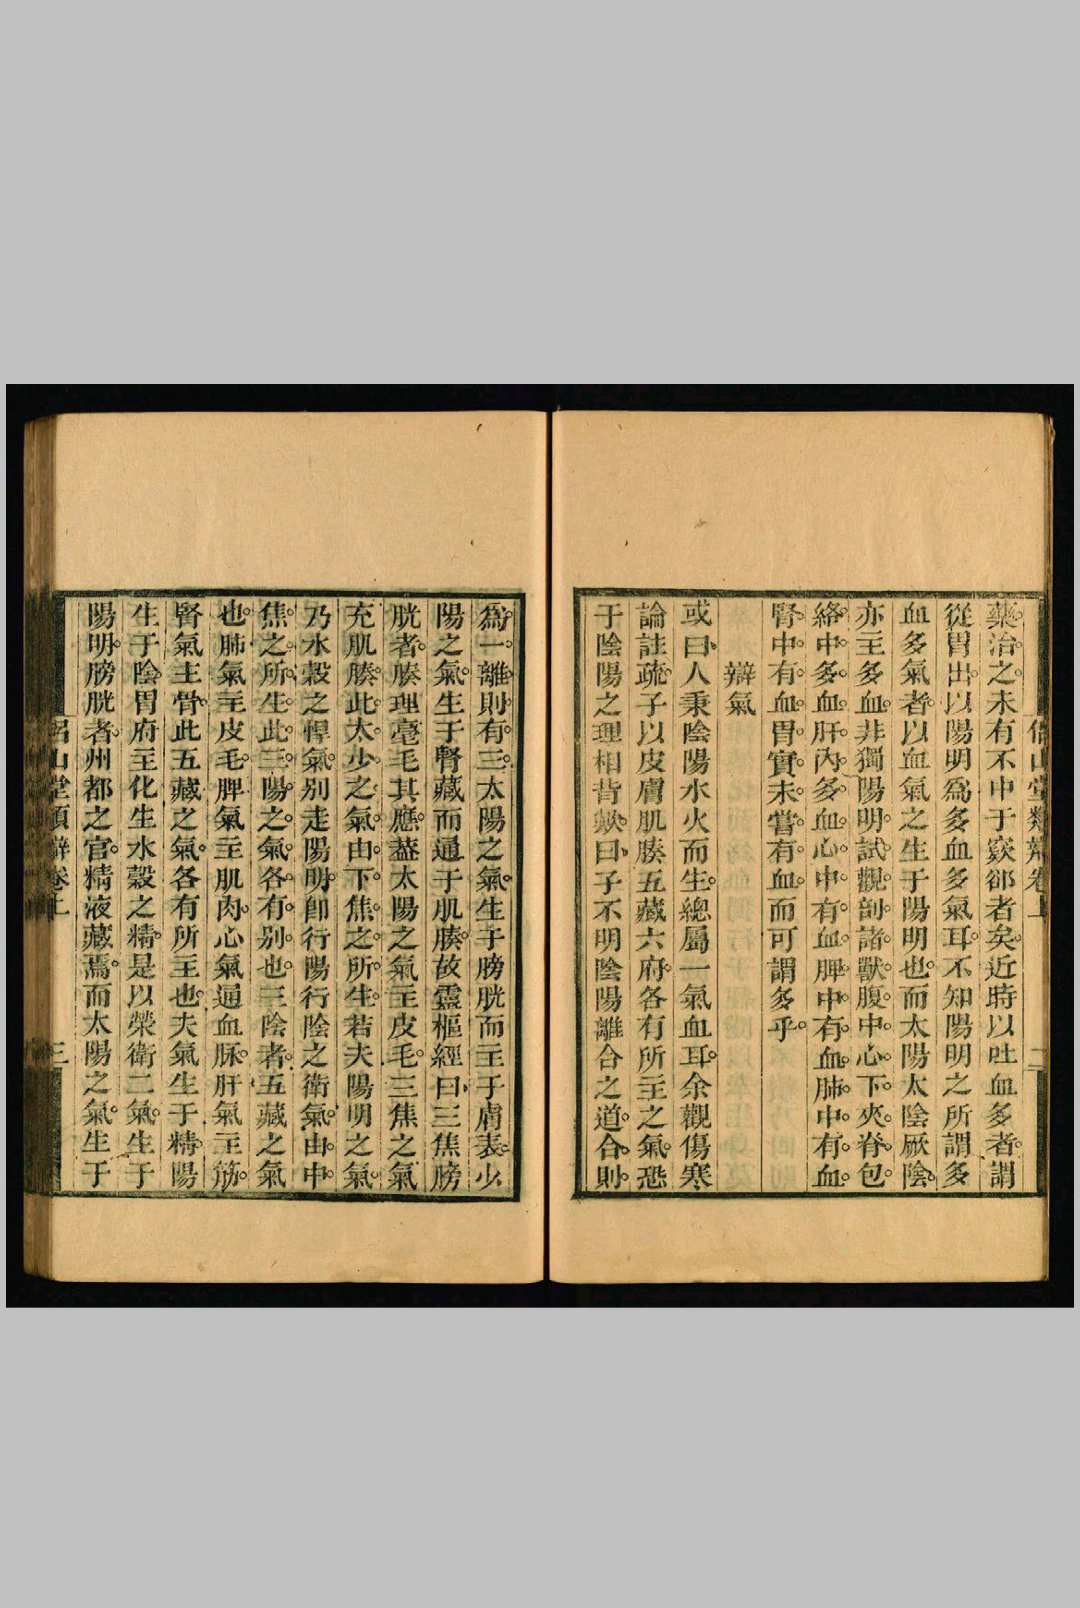 侶山堂類辯卷上 二
藥治之未有不中于窾郤者矣近時以吐血多者謂
從胃出以陽明爲多血多氣耳不知陽明之所謂多
血多氣者以血氣之生于陽明也而太陽太陰厥陰
亦主多血非獨陽明試觀剖諸獸腹中心下夾脊包
絡中多血肝內多血心中有血脾中有血肺中有血
腎中有血胃實未嘗有血而可謂多乎
辯氣
或曰人秉陰陽水火而生總屬一氣血耳余觀傷寒
論註疏子以皮膚肌腠五藏六府各有所主之氣恐
于陰陽之理相背歟曰子不明陰陽離合之道合則
爲一離則有三太陽之氣生于膀胱而主于膚表少
陽之氣生于腎藏而通于肌腠故靈樞經曰三焦膀
胱者腠理毫毛其應葢太陽之氣主皮毛三焦之氣
充肌腠此太少之氣由下焦之所生若夫陽明之氣
乃水穀之悍氣别走陽明卽行陽行陰之衛氣由中
焦之所生此三陽之氣各有别也三陰者五藏之氣
也肺氣主皮毛脾氣主肌肉心氣通血脉肝氣主筋
腎氣主骨此五藏之氣各有所主也夫氣生于精陽
生于陰胃府主化生水穀之精是以榮衛二氣生于
陽明膀胱者州都之官精液藏焉而太陽之氣生于
侶山堂類辯卷上 三